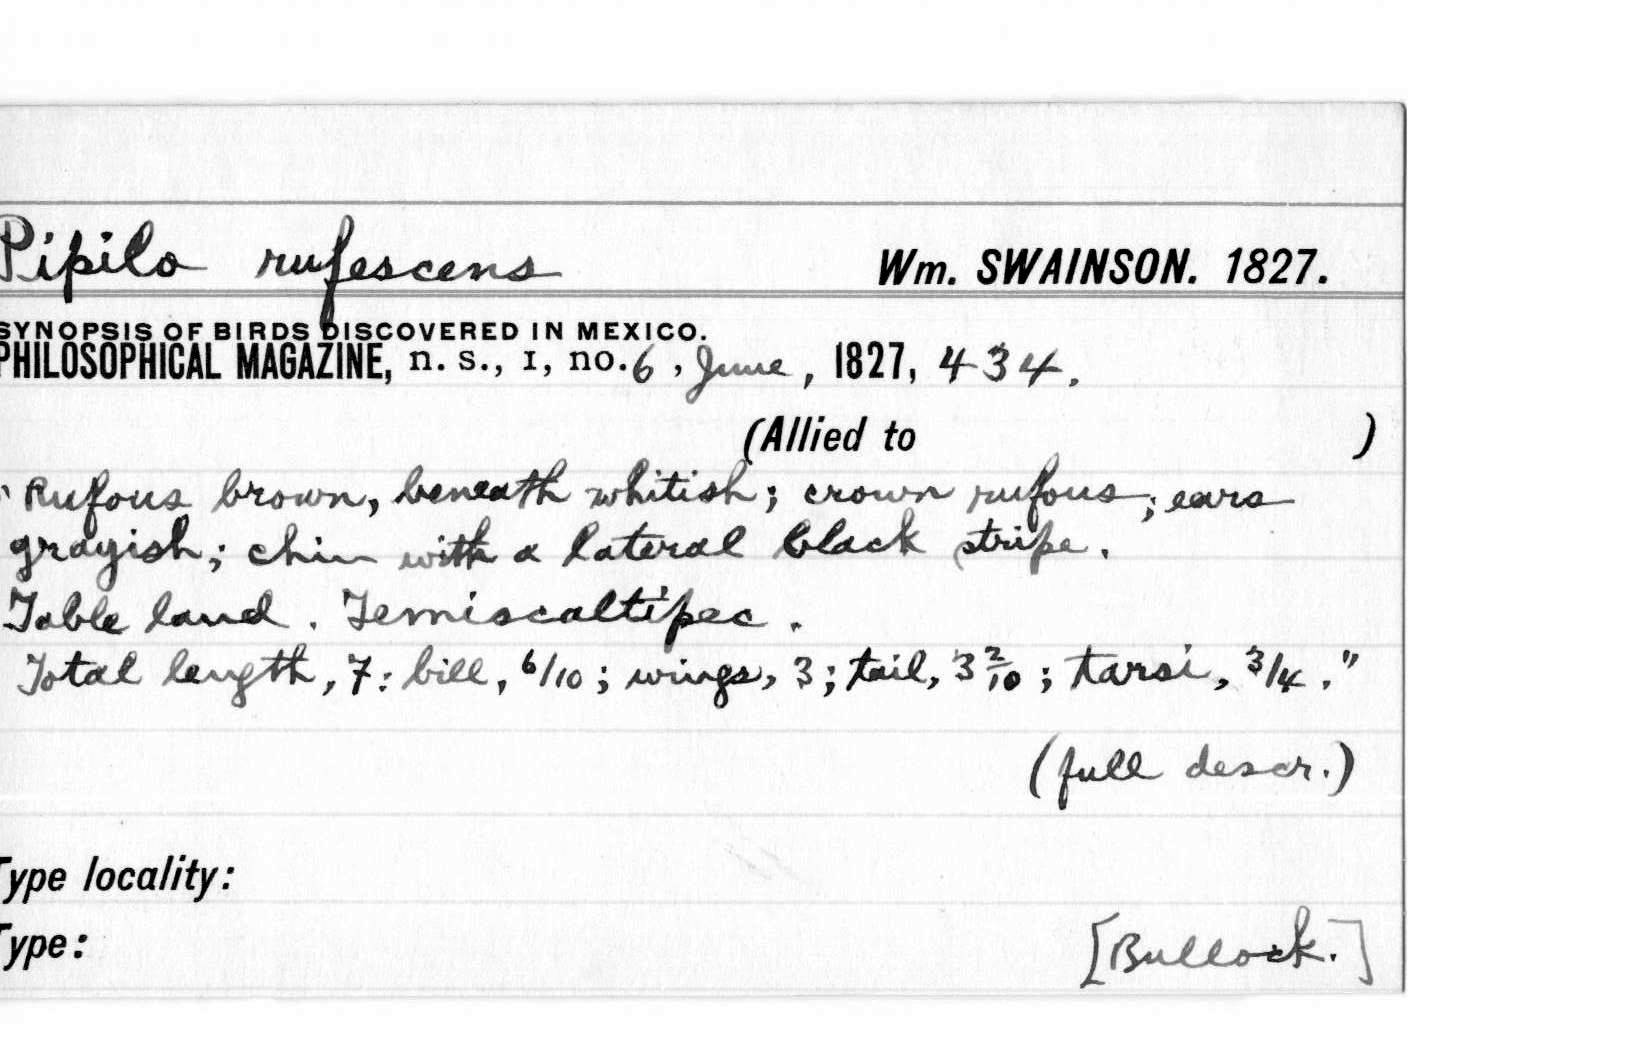 Pipilo rufescens Wm. SWAINSON. 1827.
SYNOPSIS OF BIRDS DISCOVERED IN MEXICO.
PHILOSOPHICAL MAGAZINE, n. s., 1, no. 6, June, 1827, 434.
(Allied to )
"Rufous brown, beneath whitish; crown rufous; ears
grayish; chin with a lateral black stripe.
Table land. Temiscaltipec.
Total length, 7: bill, 6/10; wings, 3; tail, 3 2/10; tarsi, 3/4."
(full descr.)
Type locality:
Type: [Bullock.]